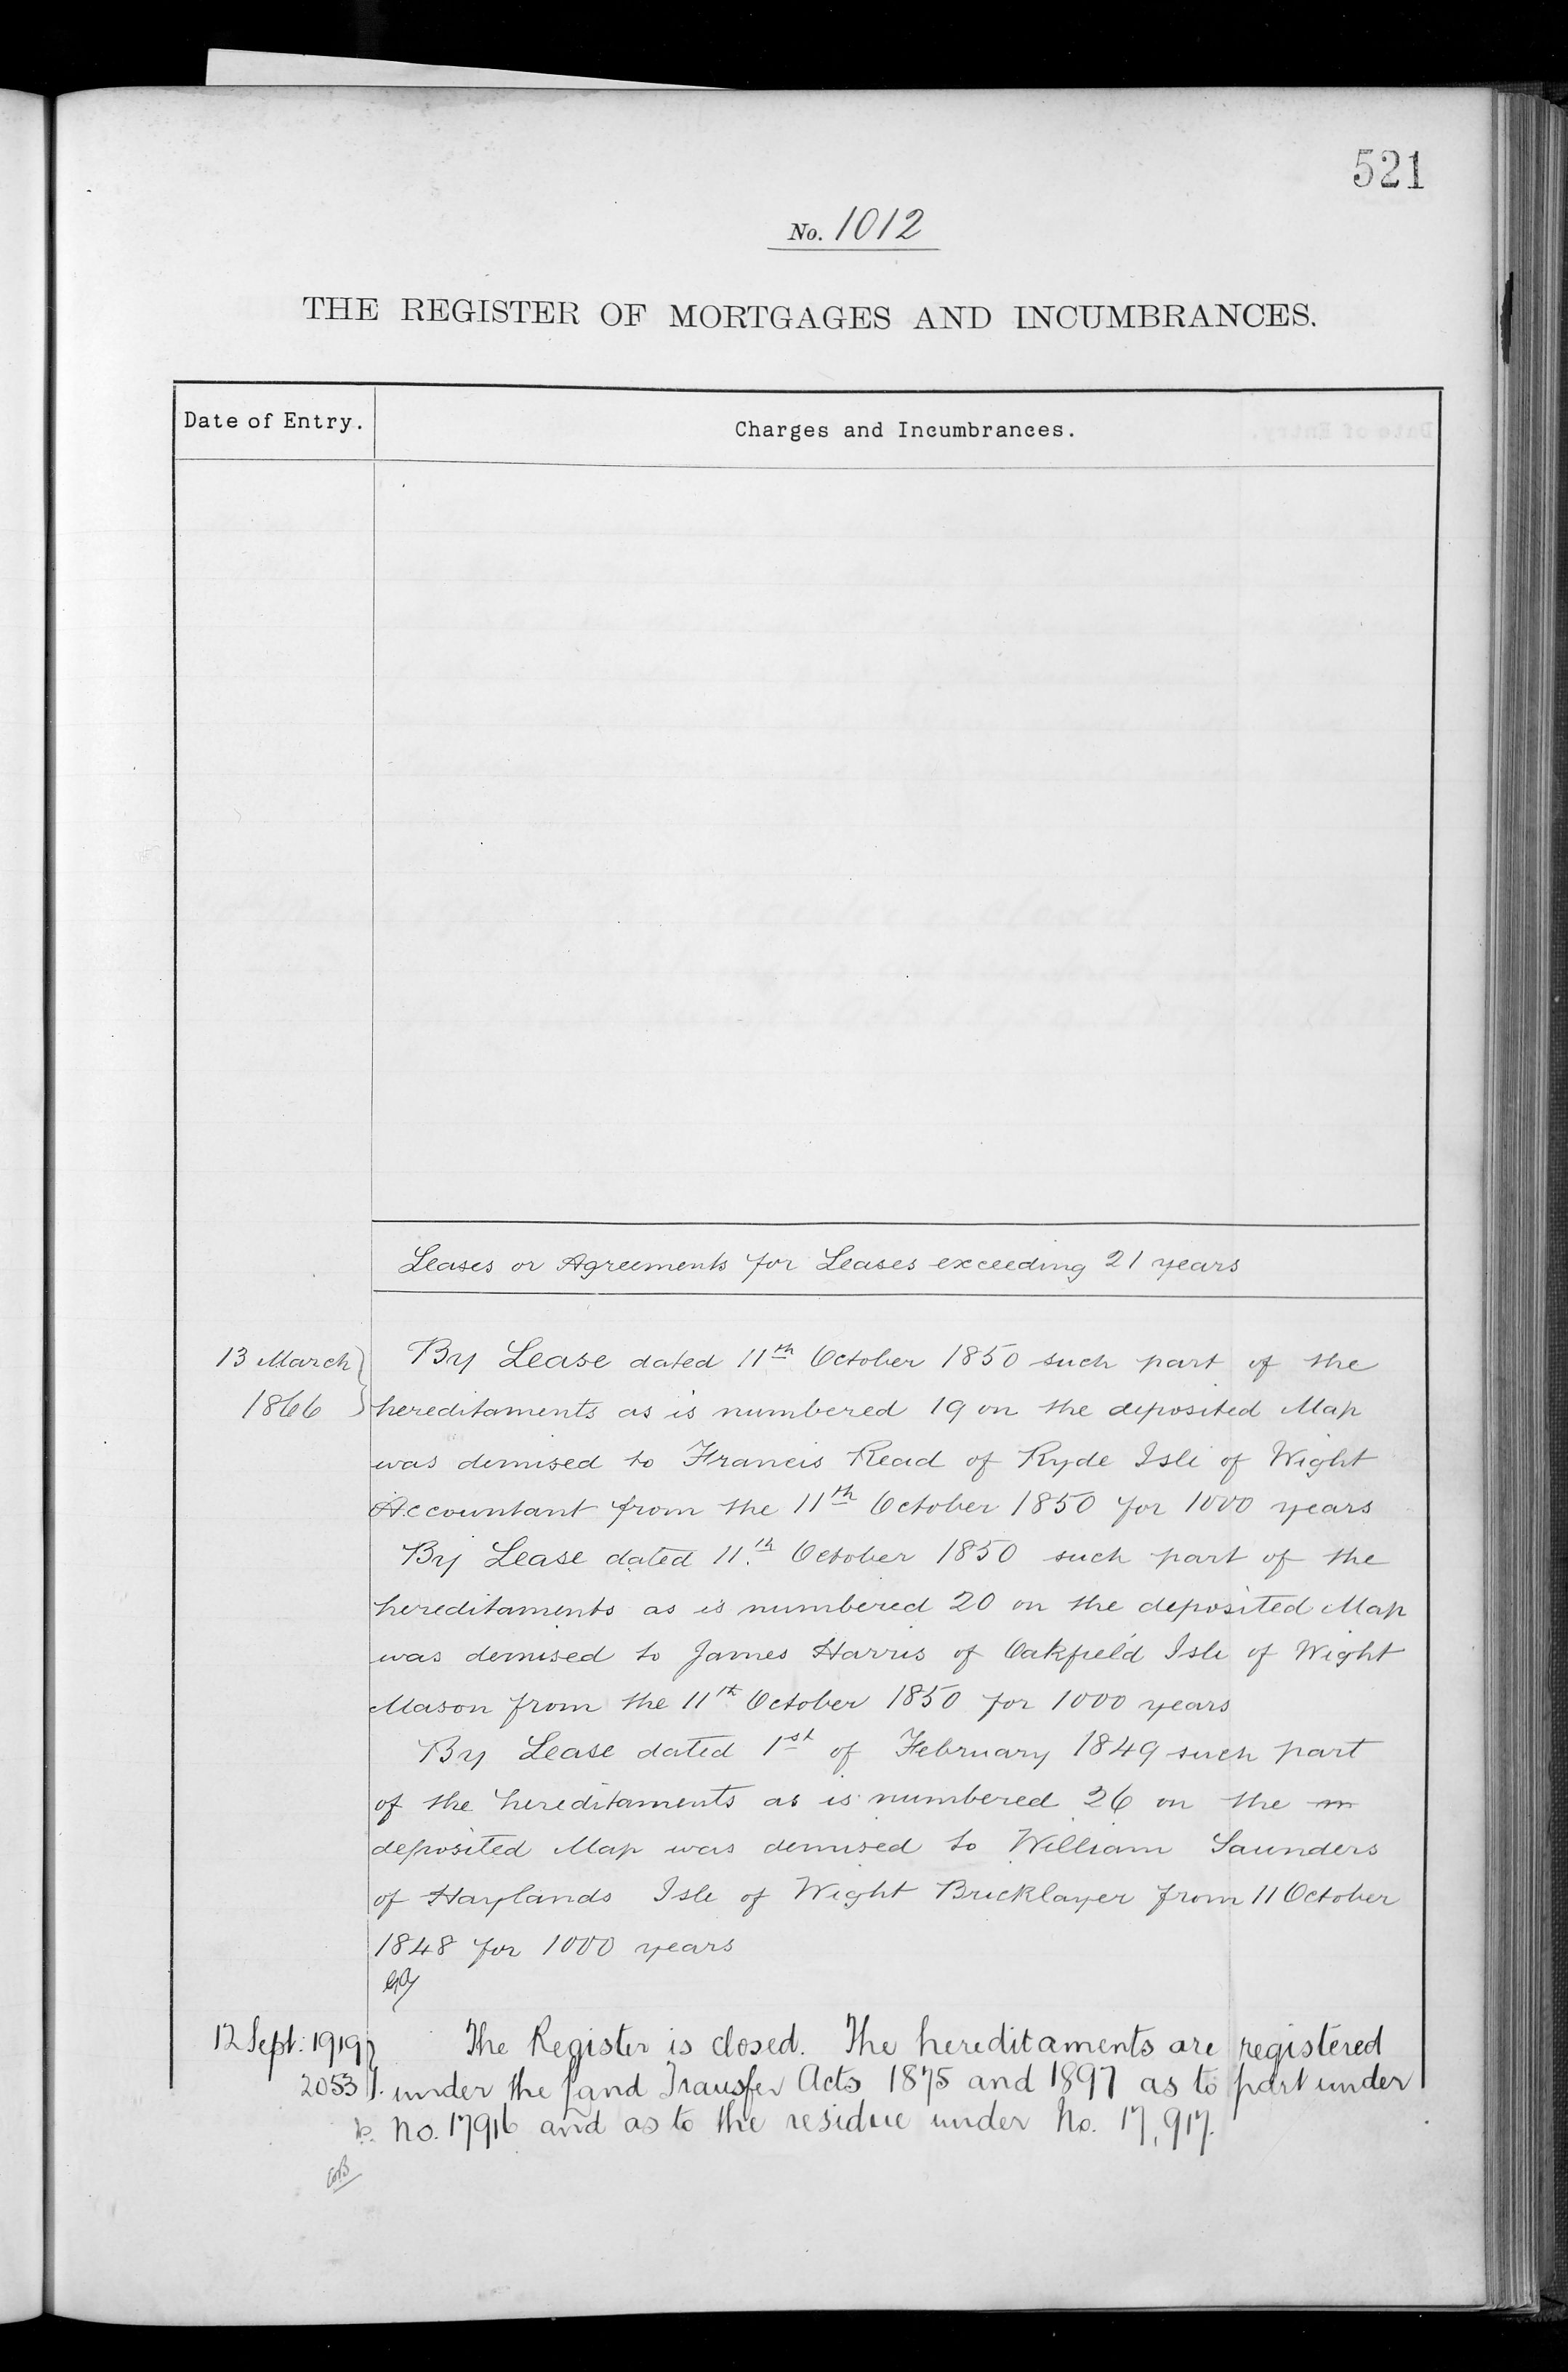 521
No. 1012
THE REGISTER OF MORTGAGES AND INCUMBRANCES.
Date of Entry.
Charges and Incumbrances.
Leases or Agreements for Leases exceeding 21 years
13 March
1866
By Lease dated 11th October 1850 such part of the
hereditaments as is numbered 19 on the deposited Map
was demised to Francis Read of Ryde Isle of Wight
Accountant from the 11th October 1850 for 1000 years
By Lease dated 11th October 1850 such part of the
hereditaments as is numbered 20 on the deposited Map
was demised to James Harris of Oakfield Isle of Wight
Mason from the 11th October 1850 for 1000 years
By Lease dated 1st of February 1849 such part
of the hereditaments as is numbered 26 on the m
deposited Map was demised to William Saunders
of Haylands Isle of Wight Bricklayer from 11 October
1848 for 1000 years
12 Sept: 1919
2053
The Register is closed. The hereditaments are registered
under the Land Transfer Acts 1875 and 1897 as to part under
No. 17916 and as to the residue under No. 17,917.